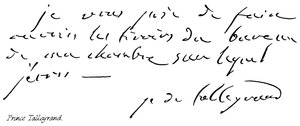 je vous prie de faire
ouvrir les tiroirs du bureau
de ma chambre sur lequel
j'écris —
p. de talleyrand
Prince Talleyrand.